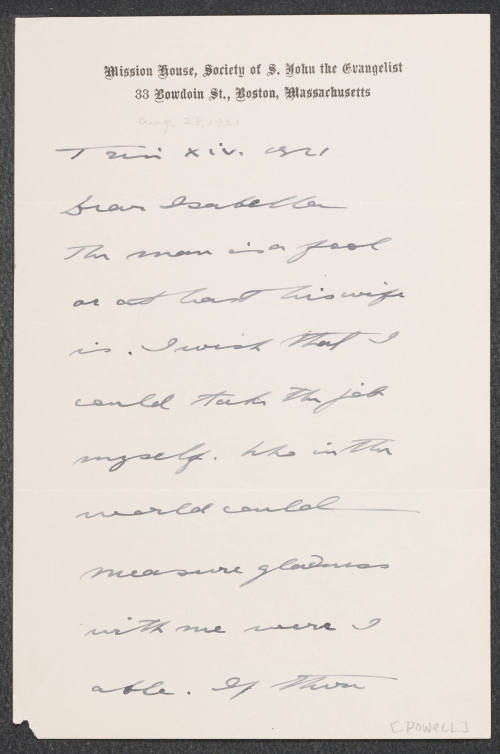 Mission House, Society of S. John the Evangelist
33 Bowdoin St., Boston, Massachusetts
Aug. 28, 1921
Trin xiv. 1921
Dear Isabella
The man is a fool
or at least his wife
is. I wish that I
could take the job
myself. Who in the
world could
measure gladness
with me were I
able. If thou
[POWELL]